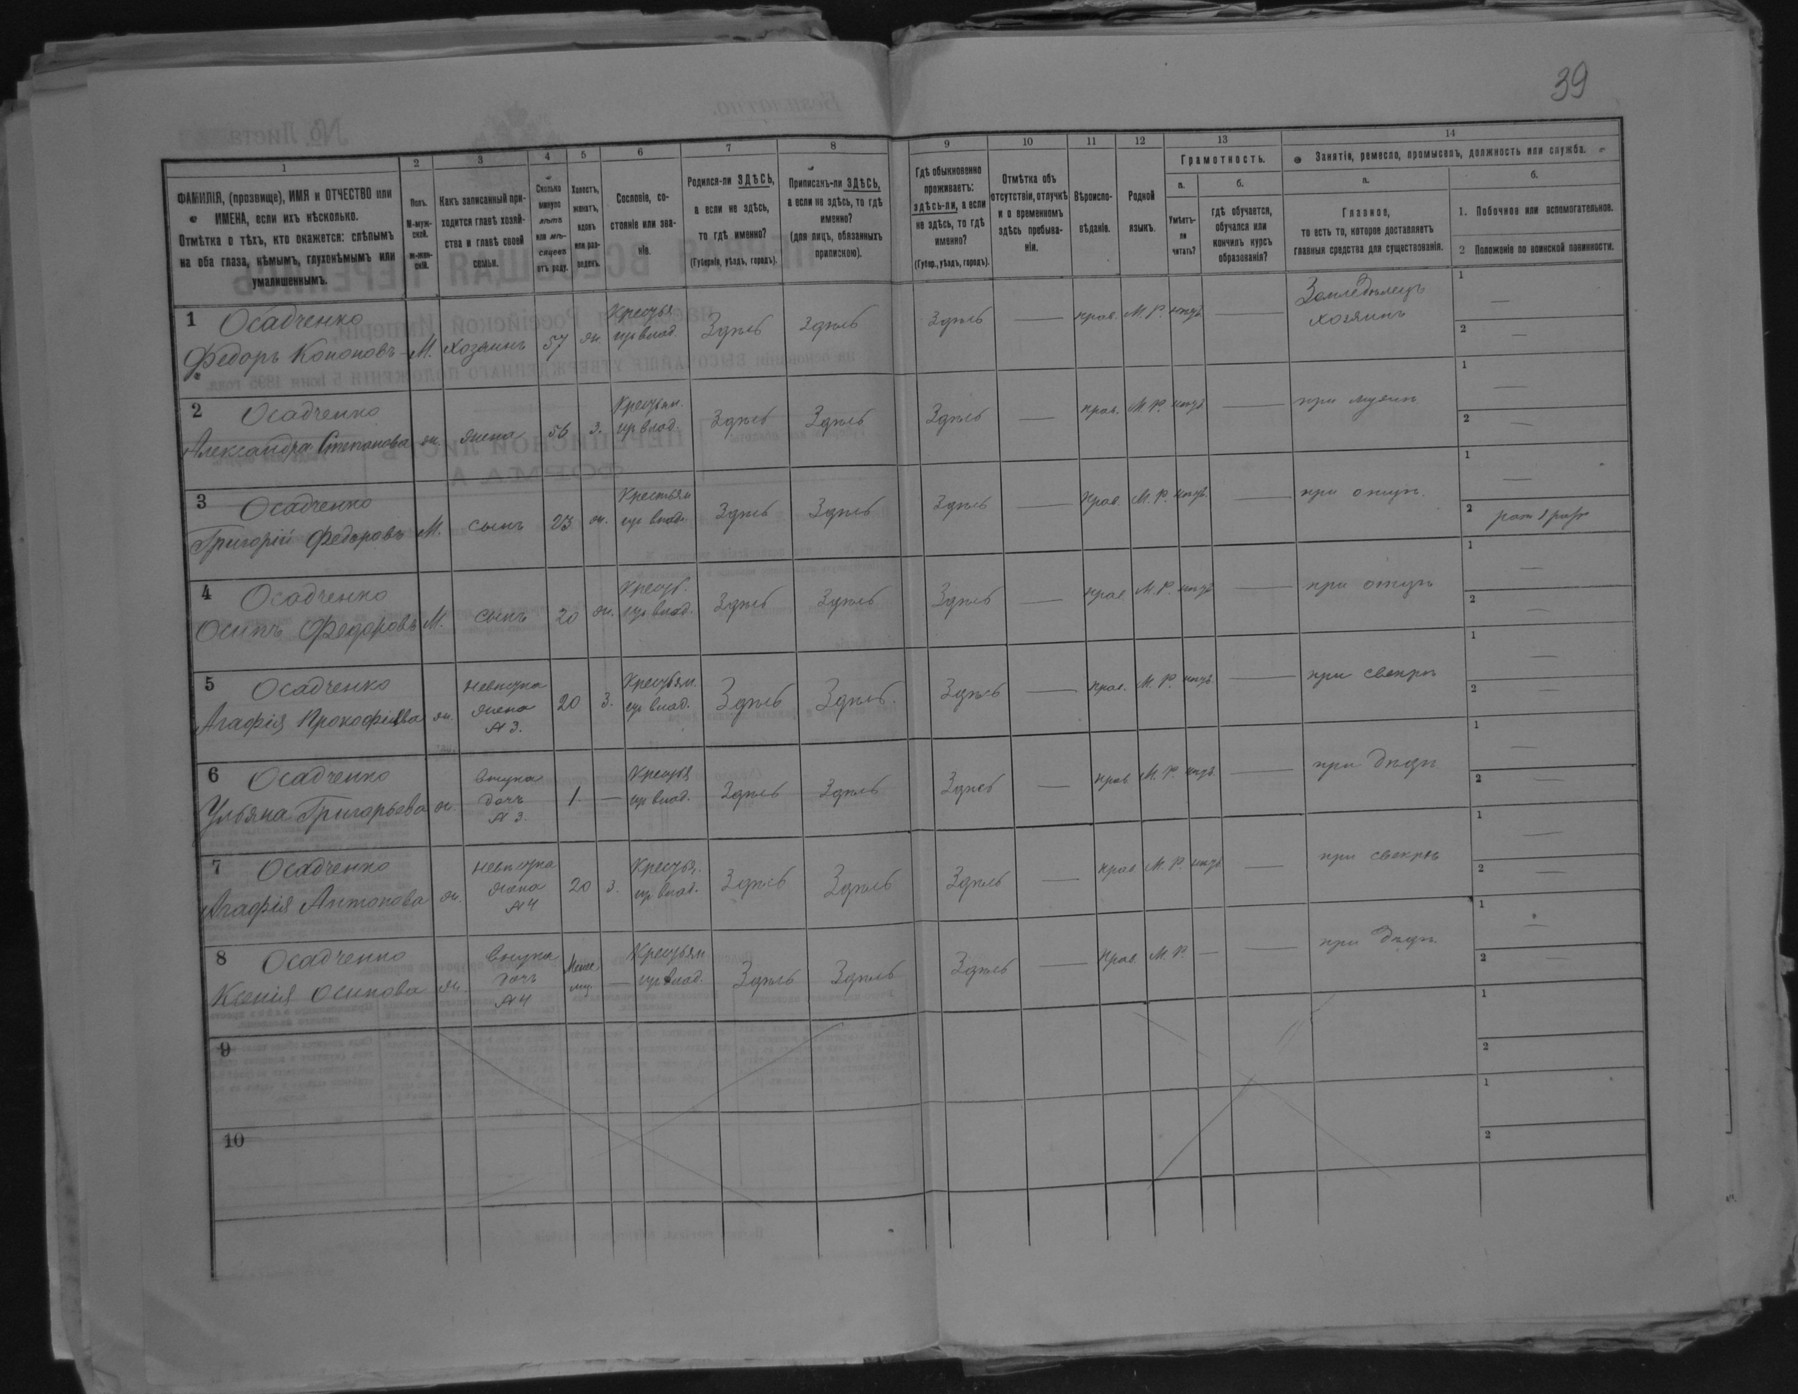 39
1 2 3 4 5 6 7 8 9 10 11 12 13 14
ФАМИЛІЯ, (прозвище), ИМЯ и ОТЧЕСТВО или
ИМЕНА, если ихъ нѣсколько.
Отмѣтка о тѣхъ, кто окажется: слѣпымъ
на оба глаза, нѣмымъ, глухонѣмымъ или
умалишеннымъ.
Полъ.
М-муж-
ской.
ж-жен-
скій.
Какъ записанный при-
ходится главѣ хозяй-
ства и главѣ своей
семьи.
Сколько
минуло
лѣтъ
или мѣ-
сяцевъ
отъ роду.
Холостъ,
женатъ,
вдовъ
или раз-
веденъ.
Сословіе, со-
стояніе или зва-
ніе.
Родился-ли ЗДѢСЬ,
а если не здѣсь,
то гдѣ именно?
(Губернія, уѣздъ, городъ).
Приписанъ-ли ЗДѢСЬ,
а если не здѣсь, то гдѣ
именно?
(для лицъ, обязанныхъ
припискою).
Гдѣ обыкновенно
проживаетъ:
здѣсь-ли, а если
не здѣсь, то гдѣ
именно?
(Губер., уѣздъ, городъ).
Отмѣтка объ
отсутствіи, отлучкѣ
и о временномъ
здѣсь пребыва-
ніи.
Вѣроиспо-
вѣданіе.
Родной
языкъ.
Грамотность.
а.
Умѣетъ-
ли
читать?
б.
гдѣ обучается,
обучался или
кончилъ курсъ
образованія?
Занятіе, ремесло, промыселъ, должность или служба.
а.
Главное,
то есть то, которое доставляетъ
главныя средства для существованія.
б.
1. Побочное или вспомогательное.
2 Положеніе по воинской повинности.
1 Осадченко
Федоръ Кононовъ М. хозяинъ 57 жн. Здѣсь Здѣсь Здѣсь прав. М. Р. нѣтъ Земледѣлецъ
хозяинъ
1
2
2 Осадченко
Александра Степанова ж. жена 56 З. Крестьян. Здѣсь Здѣсь Здѣсь прав. М. Р. нѣтъ при мужѣ
1
2
3 Осадченко
Григорій Федоровъ М. сынъ 23 ж. Крестьян Здѣсь Здѣсь Здѣсь прав. М. Р. нѣтъ при отцѣ.
1
2
4 Осадченко
Осипъ Федоровъ М. сынъ 20 ж. Здѣсь Здѣсь Здѣсь прав М. Р. нѣтъ при отцѣ
1
2
5 Осадченко
Агафія Прокофіева ж. невѣстка
жена
№ 3. 20 З. Крестьян. Здѣсь Здѣсь Здѣсь прав. М. Р. нѣтъ при свекрѣ
1
2
6 Осадченко
Ульяна Григорьева ж внучка
дочь
№ 3. 1. Здѣсь Здѣсь Здѣсь прав М. Р. нѣтъ при дѣдѣ
1
2
7 Осадченко
Агафія Антонова ж. невѣстка
жена
№ 4 20 З. Здѣсь Здѣсь Здѣсь прав М. Р. нѣтъ при свекрѣ
1
2
8 Осадченко
Ксенія Осипова ж. внучка
дочь
№ 4 Крестьян Здѣсь Здѣсь Здѣсь прав М. Р. при дѣдѣ
1
2
9
1
2
10
1
2